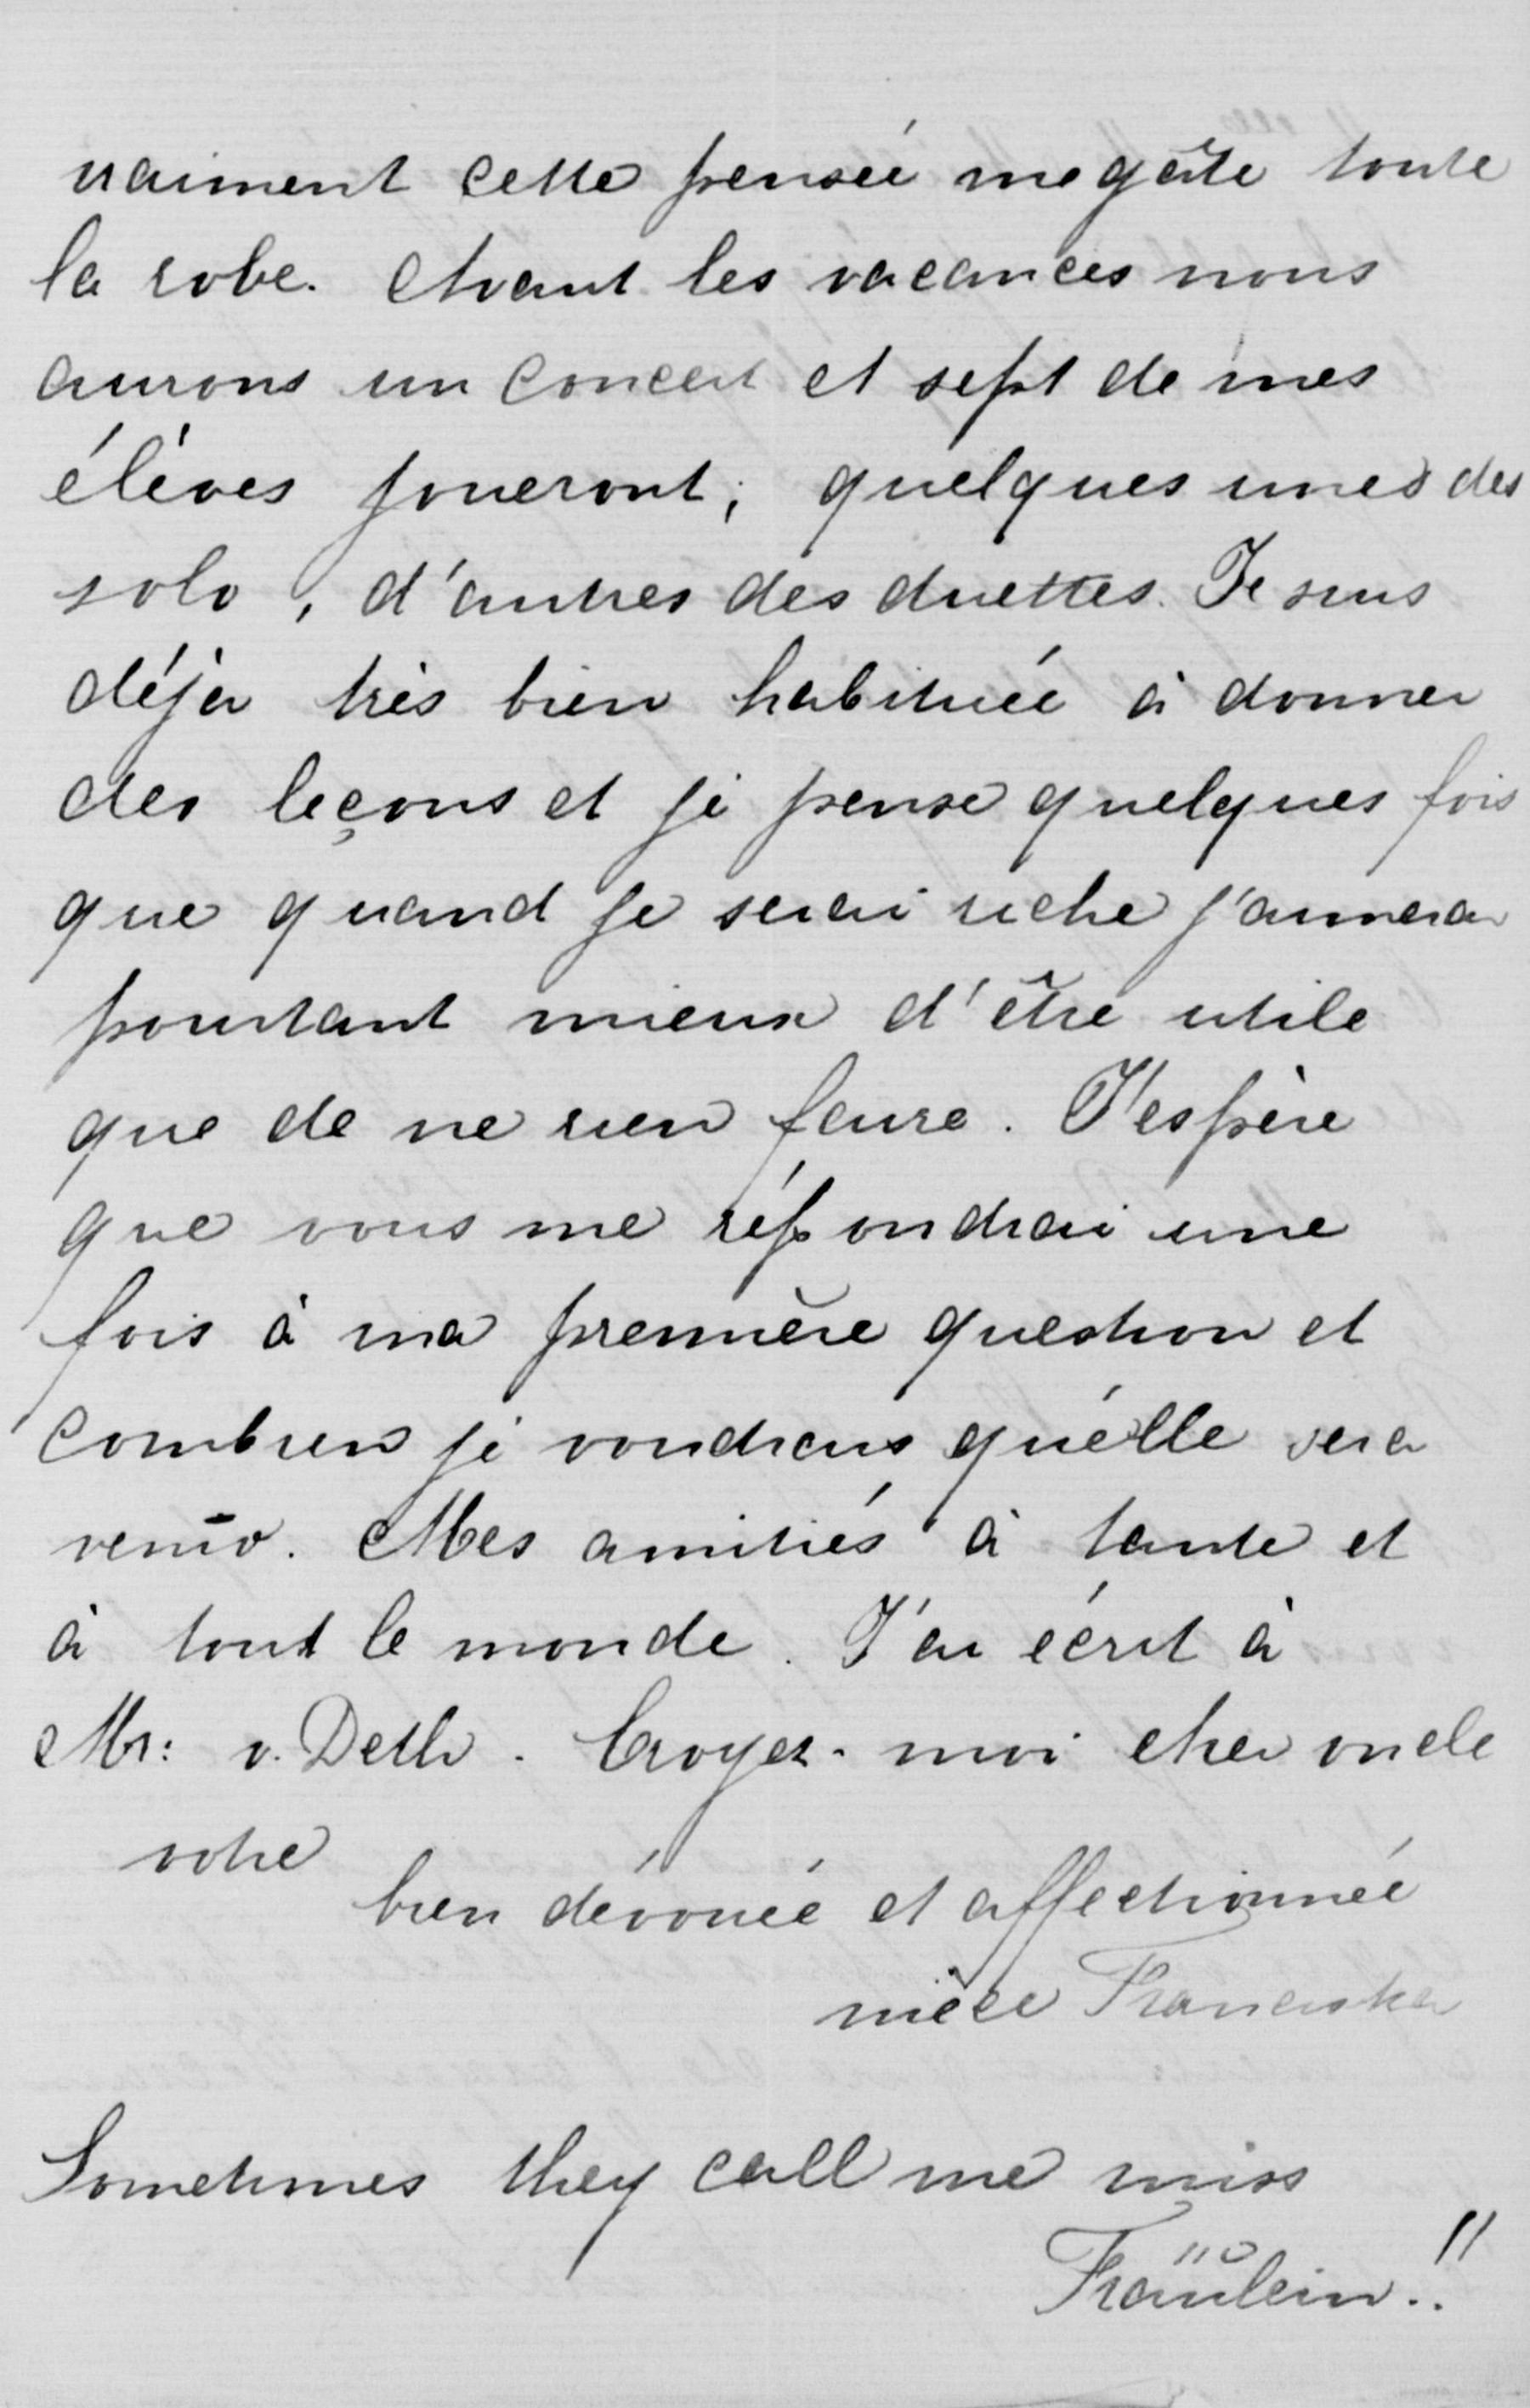 vraiment cette pensée me gâte toute
la robe. Avant les vacances nous
aurons un concert et sept de mes
élèves joueront; quelques unes des
solo, d'autres des duettes. Je suis
déjà très bien habituée à donner
des leçons et je pense quelques fois
que quand je serai riche j'aimerai
pourtant mieux d'être utile
que de ne rien faire. J'espère
que vous me répondrai une
fois à ma première question et
combien je voudrais qu'elle sera
Mes amitiés à tante et
à tout le monde. J'ai écrit à
Mr: v. Deth. Croyez-moi cher oncle
votre
bien dévouée et affectionnée
nièce Franciska
Sometimes they call me miss
Fräulein!!